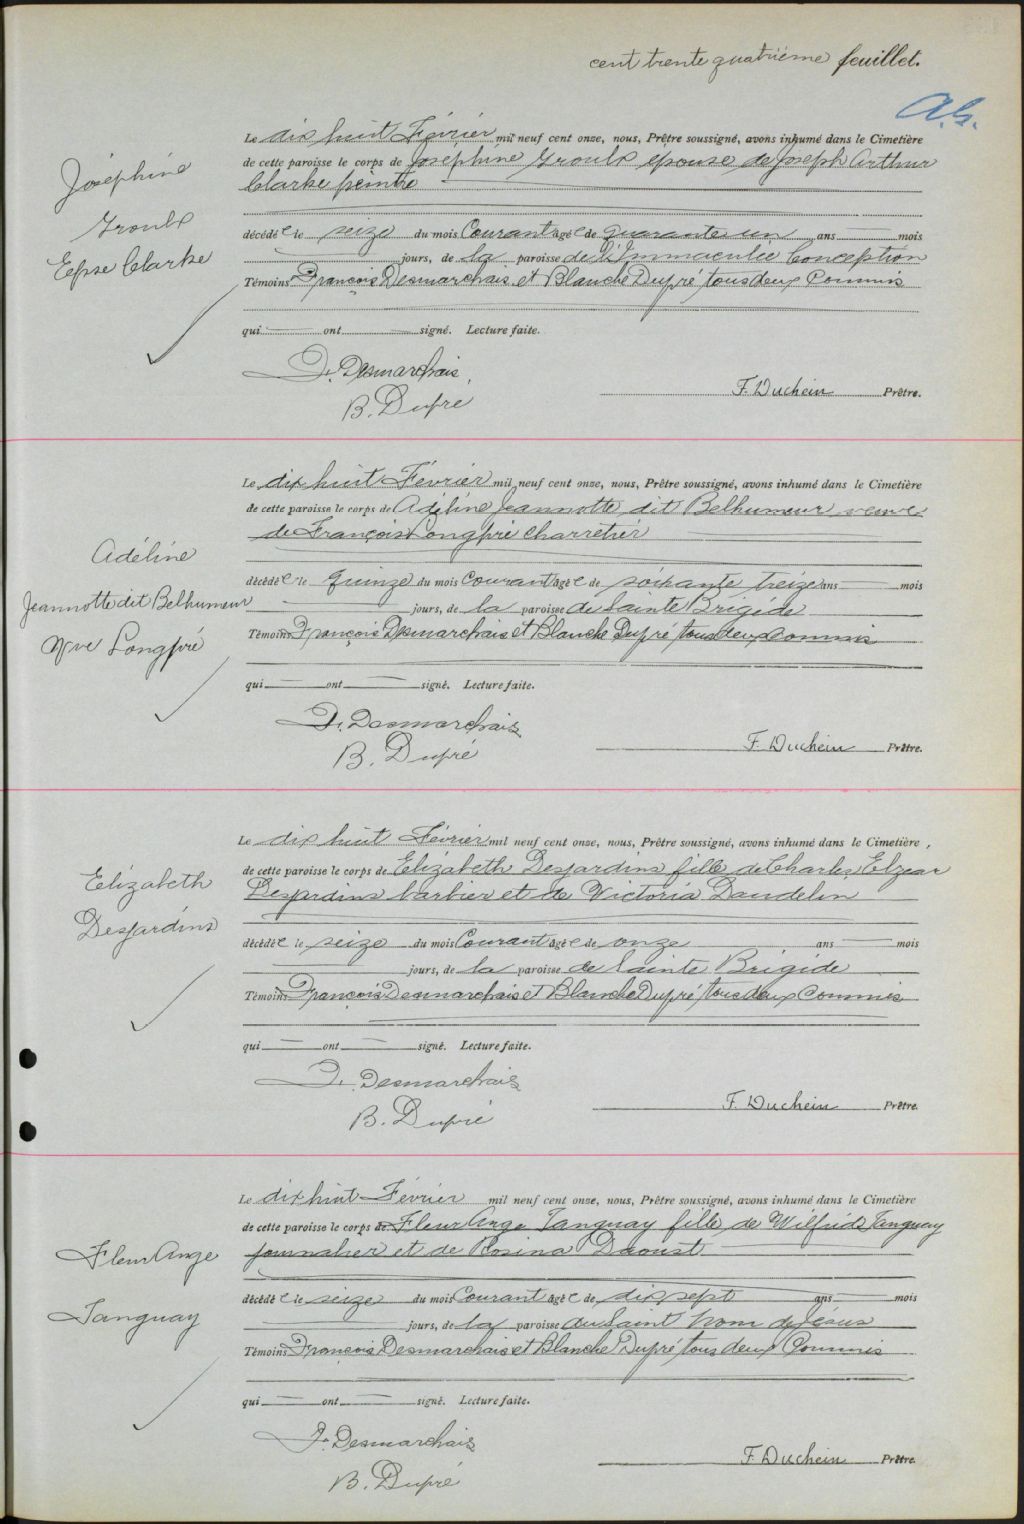 cent trente quatrième feuillet.
A.G.
Le dix huit Février mil neuf cent onze, nous, Prêtre soussigné, avons inhumé dans le Cimetière
de cette paroisse le corps de Joséphine Groulx épouse de Joseph Arthur
Clarke peintre
décédée le seize du mois Courant âgée de quarante un ans mois
jours, de la paroisse de l'Immaculée Conception
Témoins François Desmarchais et Blanche Dupré tous deux Commis
qui ont signé. Lecture faite.
Joséphine
Groulx
Epse Clarke
F. Desmarchais
B. Dupré
F. Duchein Prêtre.
Le dix huit Février mil neuf cent onze, nous, Prêtre soussigné, avons inhumé dans le Cimetière
de cette paroisse le corps de Adéline Jeannotte dit Belhumeur veuve
de François Longpré charretier
décédée le quinze du mois Courant âgée de soixante treize ans mois
jours, de la paroisse de Sainte Brigide
Témoins François Desmarchais et Blanche Dupré tous deux commis
qui ont signé. Lecture faite.
Adéline
Jeannotte dit Belhumeur
Vve Longpré
F. Desmarchais
B. Dupré
F. Duchein Prêtre.
Le dix huit Février mil neuf cent onze, nous, Prêtre soussigné, avons inhumé dans le Cimetière
de cette paroisse le corps de Elizabeth Desjardins fille de Charles Elzear
Desjardins barbier et de Victoria Daudelin
décédée le seize du mois Courant âgée de onze ans mois
jours, de la paroisse de Sainte Brigide
Témoins François Desmarchais et Blanche Dupré tous deux Commis
qui ont signé. Lecture faite.
Elizabeth
Desjardins
F. Desmarchais
B. Dupré
F. Duchein Prêtre.
Le dix huit Février mil neuf cent onze, nous, Prêtre soussigné, avons inhumé dans le Cimetière
de cette paroisse le corps de Fleur Ange Tanguay fille de Wilfrid Tanguay
journalier et de Rosina Daoust
décédée le seize du mois Courant âgée de dix sept ans mois
jours, de la paroisse du Saint Nom de Jésus
Témoins François Desmarchais et Blanche Dupré tous deux Commis
qui ont signé. Lecture faite.
Fleur Ange
Tanguay
F. Desmarchais
B. Dupré
F. Duchein Prêtre.